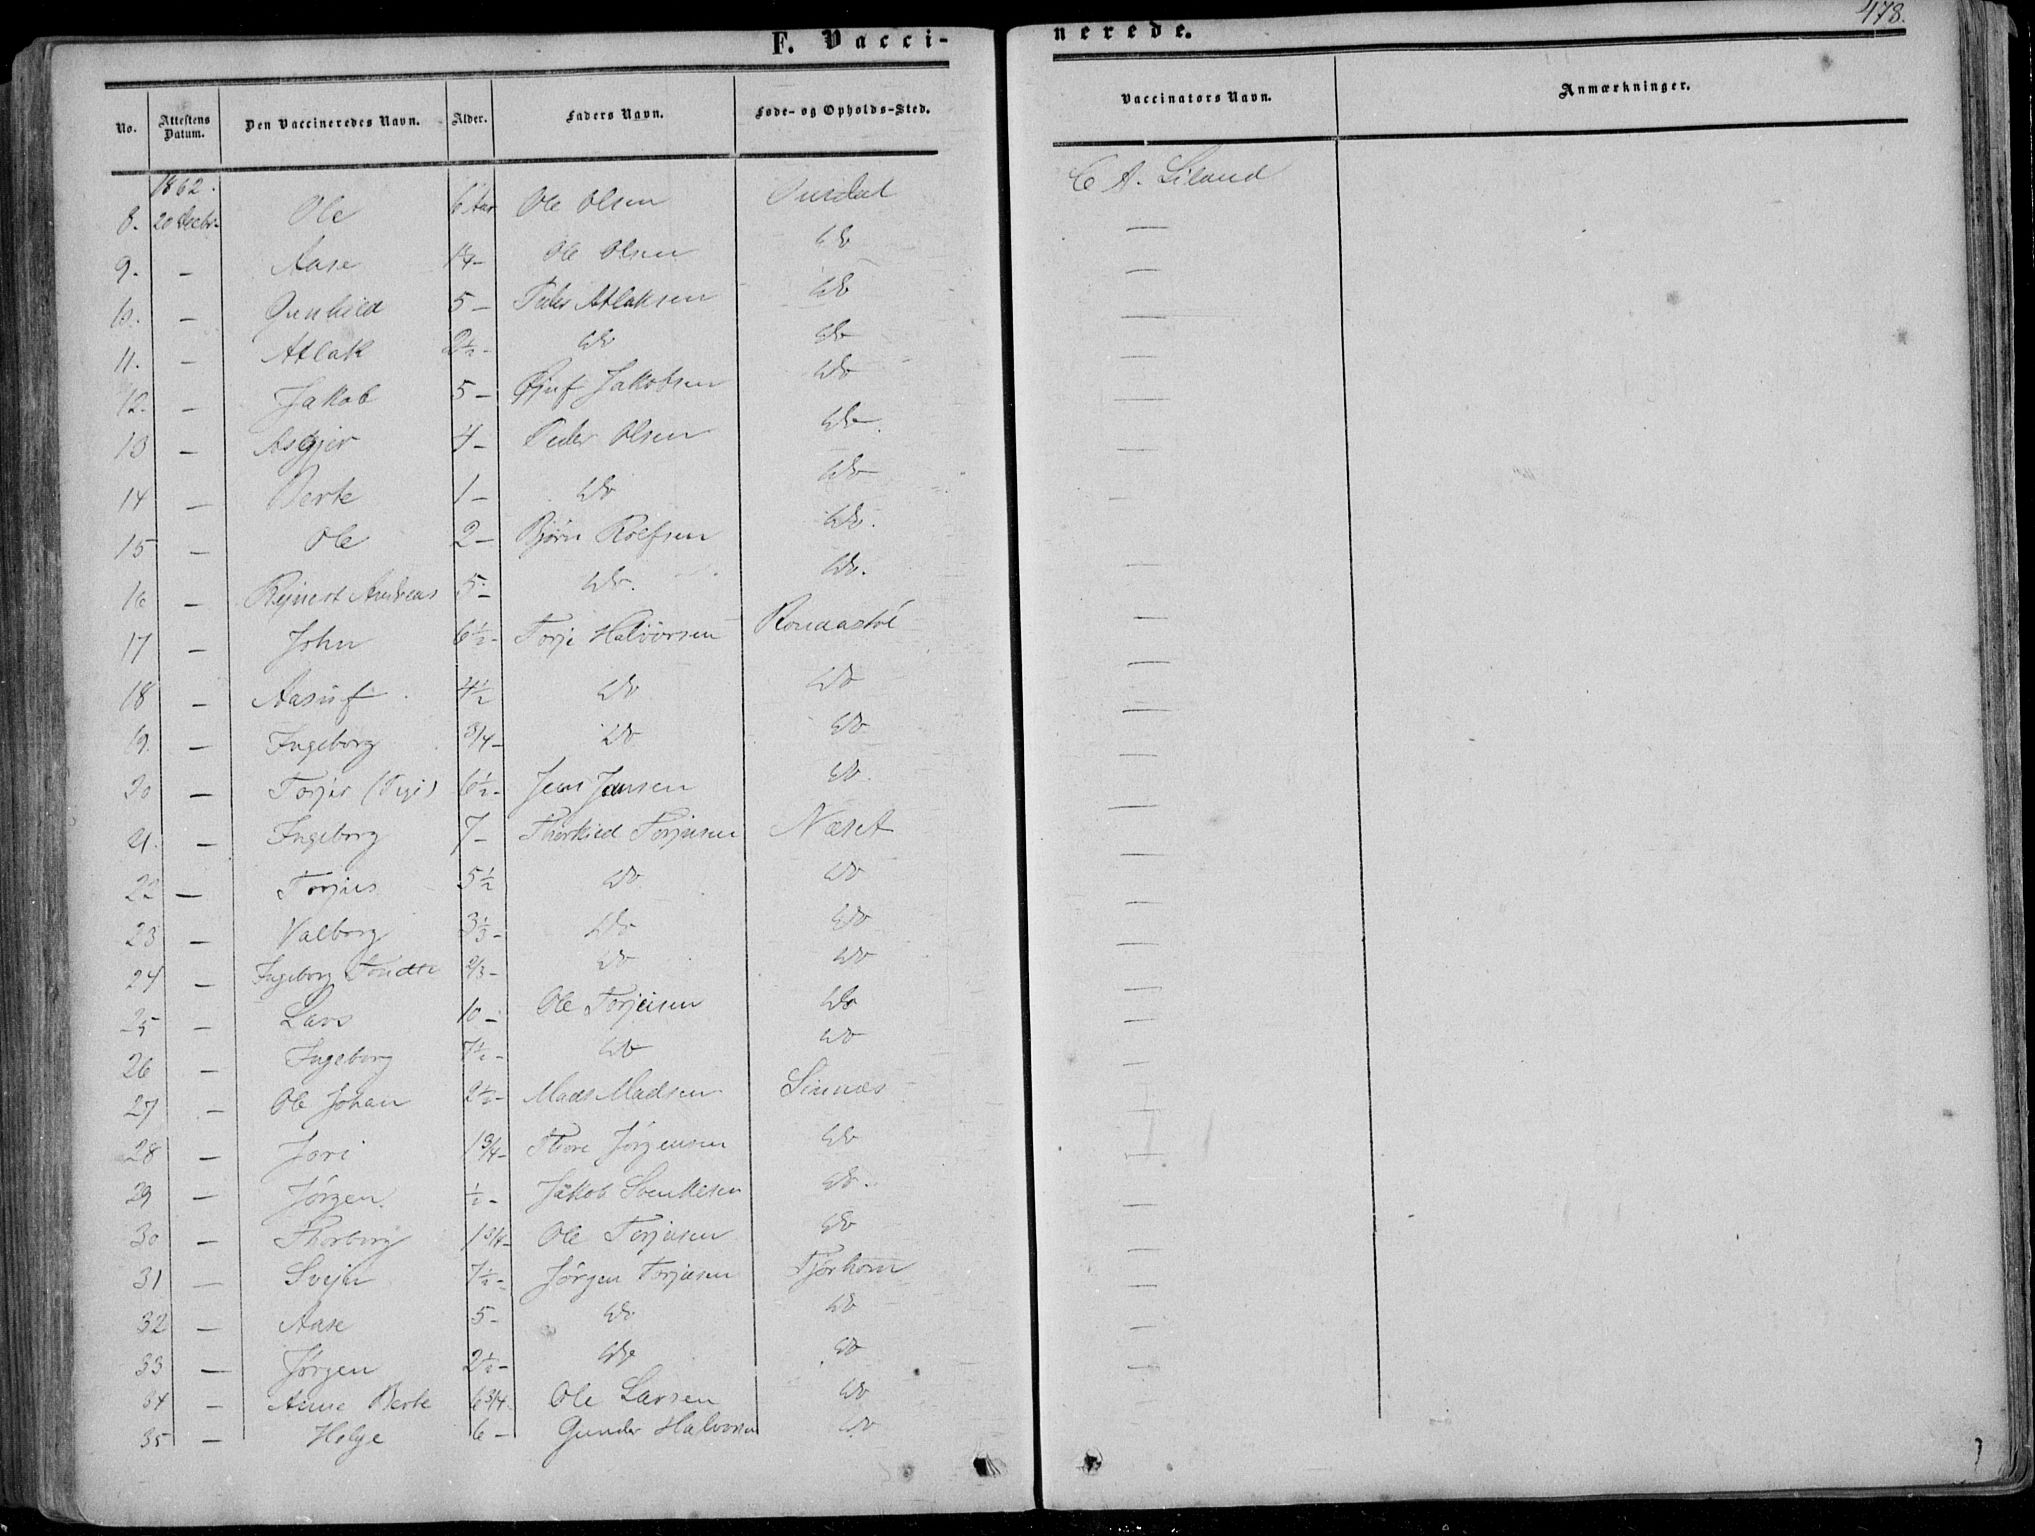 478.
F. Vacci-nerede.
No. Attestens Datum. Den Vaccineredes Navn. Alder. Faders Navn. Føde- og Opholds-Sted. Vaccinators Navn. Anmærkninger.
1862.
8. 20 Decbr. Ole 6 Aar Ole Olsen Suleskar C A. Liland
9. — Aase 14- Ole Olsen Do —
10. — Gunhild 5- Peder Atlaksen Do —
11. — Atlak 2½- Do Do —
12. — Jakob 5- Jakobsen Do —
13 — Asgjer 4- Peder Olsen Do. —
14 — Berte 1- Do Do —
15 — Ole 2- Bjørn Rolfsen Do. —
16 — Rejnert Andreas 5- Do. Do. —
17 — John 6½- Torje Halvorsen —
18 — 4½ Do Do —
19. — Ingeborg 3/4- Do Do —
20 — Torjer 6½- Jens Jansen Do. —
21. — Ingeborg 7- Thorkild Torjusen Næset —
22 — Torjus 5½ Do Do —
23 — Valborg 3⅓- Do Do —
24 — Ingeborg 2/3- Do Do —
25 — Lars 10- Ole Torjeisen Do —
26 — Ingeborg 7½- Do Do —
27 — Ole Johan 2½- Mads Madsen Sinnæs —
28 — Jori 1 3/4- Thore Jørgensen Do —
29 — Jørgen ½- Jakob Svenkesen Do. —
30 — Thorborg 1 3/4- Ole Torjusen Do —
31 — Svejn 7½- Jørgen Torjusen Tjørhom —
32 — Aase 5- Do Do —
33 — Jørgen 2½- Do Do —
34 — Anne Berte 6 3/4. Ole Larsen Do
35 — Helge 6- Gunder Halvorsen Do